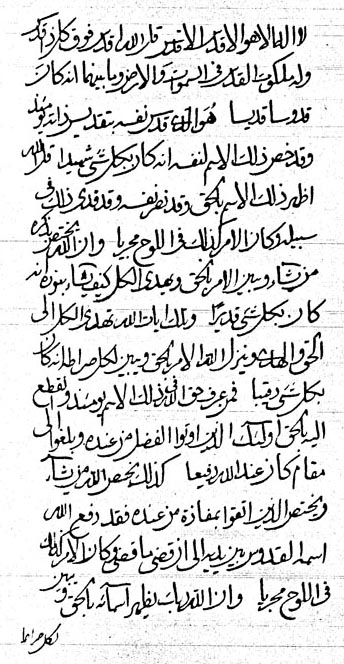 لا اله الا هو الاقدر الاقدر قل الله اقدر فوق كل ذا قدر
وله ملكوت القدس فى السموات والارض وما بينهما انه كان
قدوسا قديسا هو الذى قدس نفسه بتقديس ذاته يومئذ
وقد خص ذلك الاسم لنفسه انه كان بكل شىء شهيدا قل الله
اظهر ذلك الاسم بالحق وقد نصر نفسه وقد فدى ذلك فى
سبيله وكان الامر كذلك فى اللوح مجريا وان الله يختص بذكره
من يشاء ويبين الامر بالحق ويهدى الكل كيف يشاء بنوره انه
كان بكل شىء قديرا وتلك ايات الله تهدى الكل الى
الحق والهدى وينزل الله الامر بالحق ويبين لكل صراطه انه كان
بكل شىء رقيبا فمن عرف حق الله فى ذلك الاسم يومئذ وانقطع
اليه بالحق اولئك الذين اوتوا الفضل من عنده وبلغوا الى
مقام كان عند الله رفيعا كذلك يختص الله من يشاء
ويختص الذين اتقوا بمفازة من عنده فقد رفع الله
اسمه القدوس بين يديه الى ان قضى ما قضى وكان الامر كذلك
فى اللوح مجريا وان الله بهاب يظهر اسمائه بالحق ويبين
لكل صراطا